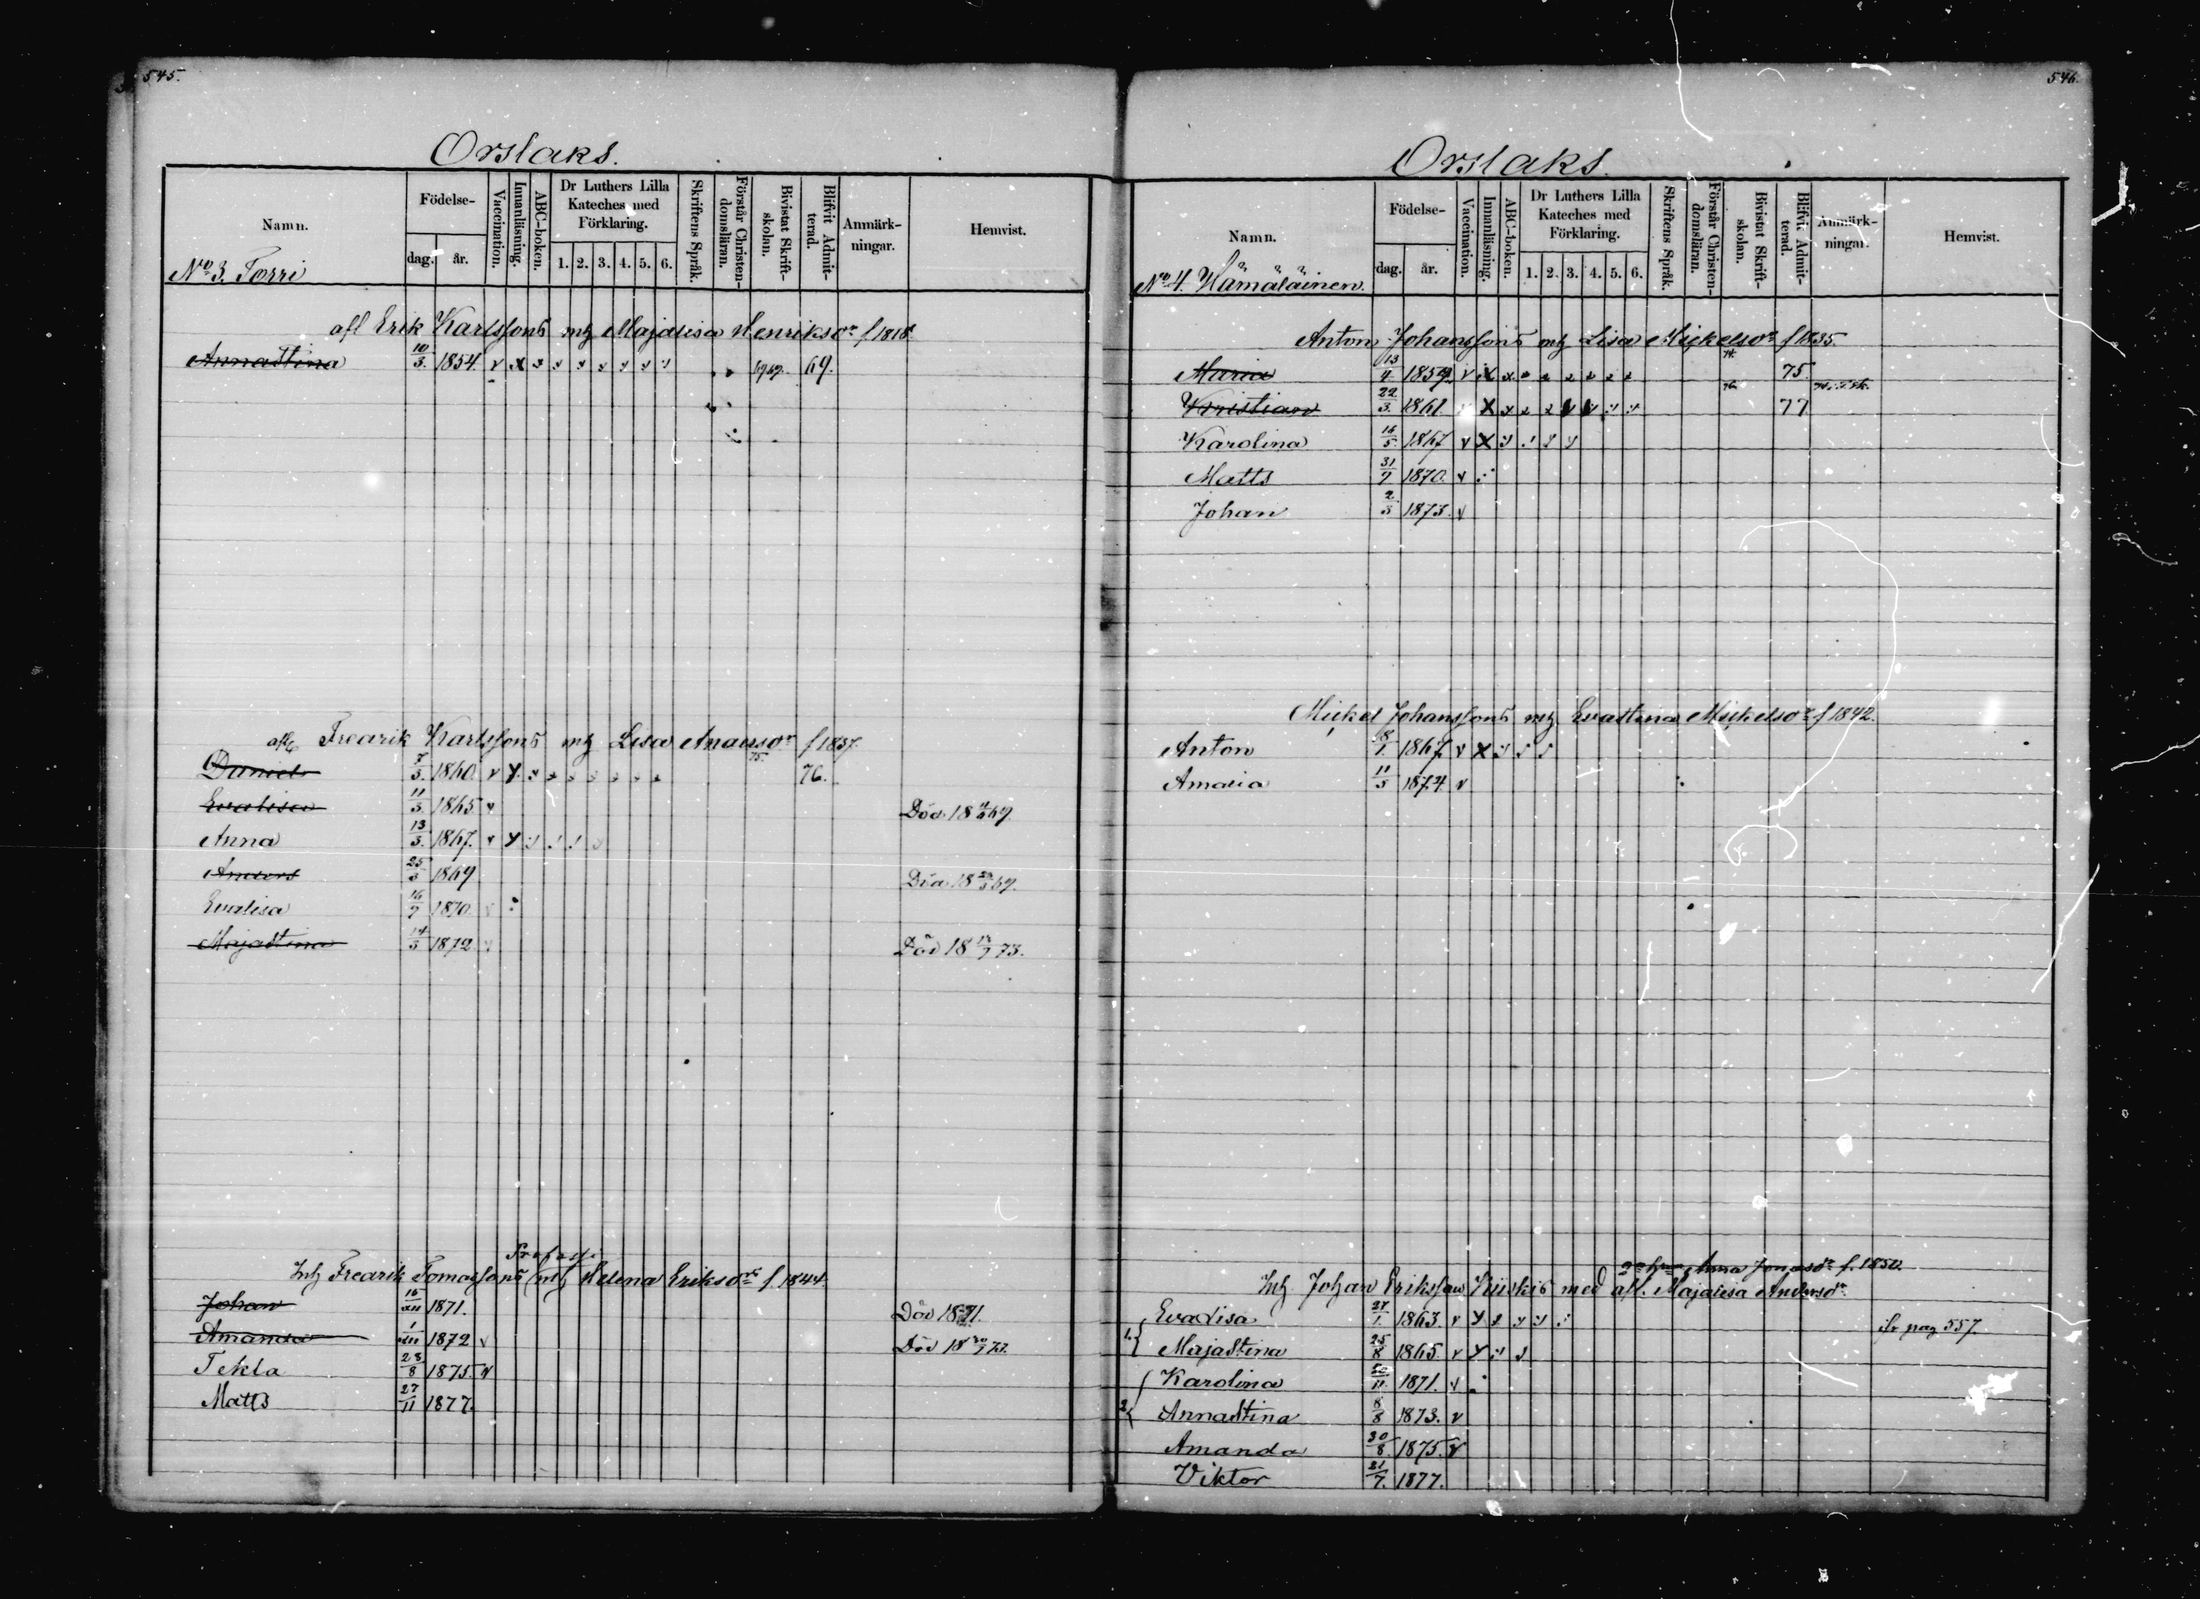 545.
Orslaks.
Namn.
Födelse-
dag.
år.
Vaccination.
Innanläsning.
ABC-boken.
Dr Luthers Lilla Kateches med Förklaring.
1. 2. 3. 4. 5. 6.
Skriftens Språk.
Förstår Christendomsläran.
Bivistat Skriftskolan.
Blifvit Admitterad.
Anmärkningar.
Hemvist.
No 3. Torri
afl Erik Karlssons mh Majalisa Henriksdr f 1818
Annastina 10/3. 1854. 69.
afl. Fredrik Karlssons mh Lisa Andersdr f 1837.
Daniel 1860. 75. 76.
Evalisa 11/3. 1865 Död 18 69.
Anna 13/3. 1867.
Anders 25/3 1869 Död 18 69.
Evalisa 16/9 1870.
Majastina 14/3 1872. Död 18 73.
Inh Fredrik Tomassons mh Helena Eriksdr f. 1844.
Johan 16/XII 1871. Död 18 71.
Amanda 1872 Död 18
Tekla 28/8 1875.
Matts 27/11 1877.
546.
Orslaks.
Namn.
Födelse-
dag.
år.
Vaccination.
Innanläsning.
ABC-boken.
Dr Luthers Lilla Kateches med Förklaring.
1. 2. 3. 4. 5. 6.
Skriftens Språk.
Förstår Christendomsläran.
Bivistat Skriftskolan.
Blifvit Admitterad.
Anmärkningar.
Hemvist.
No 4. Hämäläinen.
Anton Johanssons mh Lisa Mickelsdr f 1835.
Maria 13/4 1859. 75
Kristian 22/3. 1861. 77
Karolina 16/5. 1867
Matts 31/7 1870.
Johan 2/3 1873.
Mickel Johanssons mh Evastina Mickelsdr f 1842.
Anton 18/1. 1867.
Amalia 11/3 1874
2 h Anna Jonasdr f. 1850.
Inh Johan Eriksson Kiiskis med afl. Majalisa Andersdr
1. Evalisa 27/1. 1863. fr pag 557.
Majastina 25/8 1865.
2. Karolina 1871.
Annastina 8/8 1873.
Amanda 30/8. 1875.
Viktor 21/7. 1877.